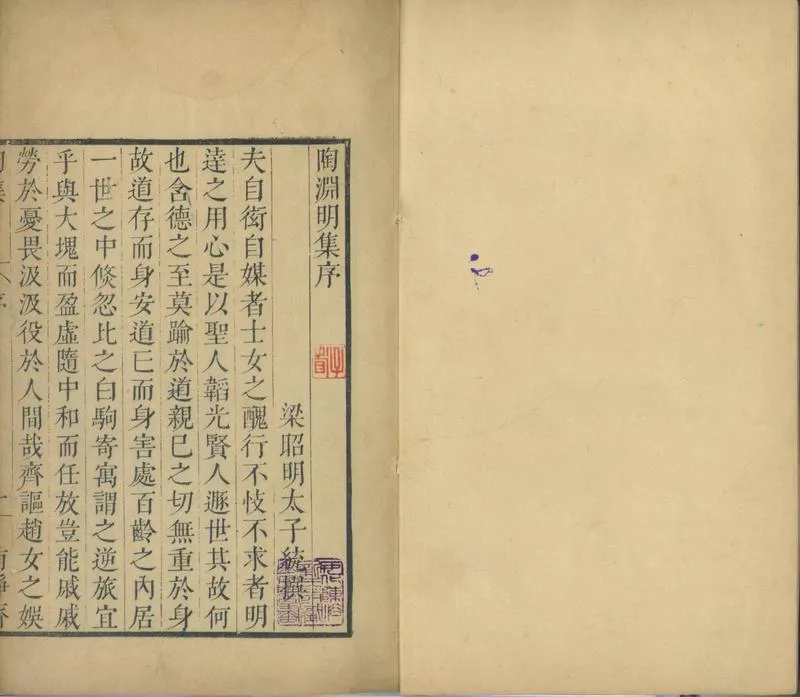 陶淵明集序
梁昭明太子統撰
夫自衒自媒者士女之醜行不忮不求者明
達之用心是以聖人韜光賢人遯世其故何
也含德之至莫踰於道親巳之切無重於身
故道存而身安道巳而身害處百齡之內居
一世之中倏忽比之白駒寄寓謂之逆旅宜
乎與大塊而盈虛隨中和而任放豈能戚戚
勞於憂畏汲汲役於人間哉齊謳趙女之娛